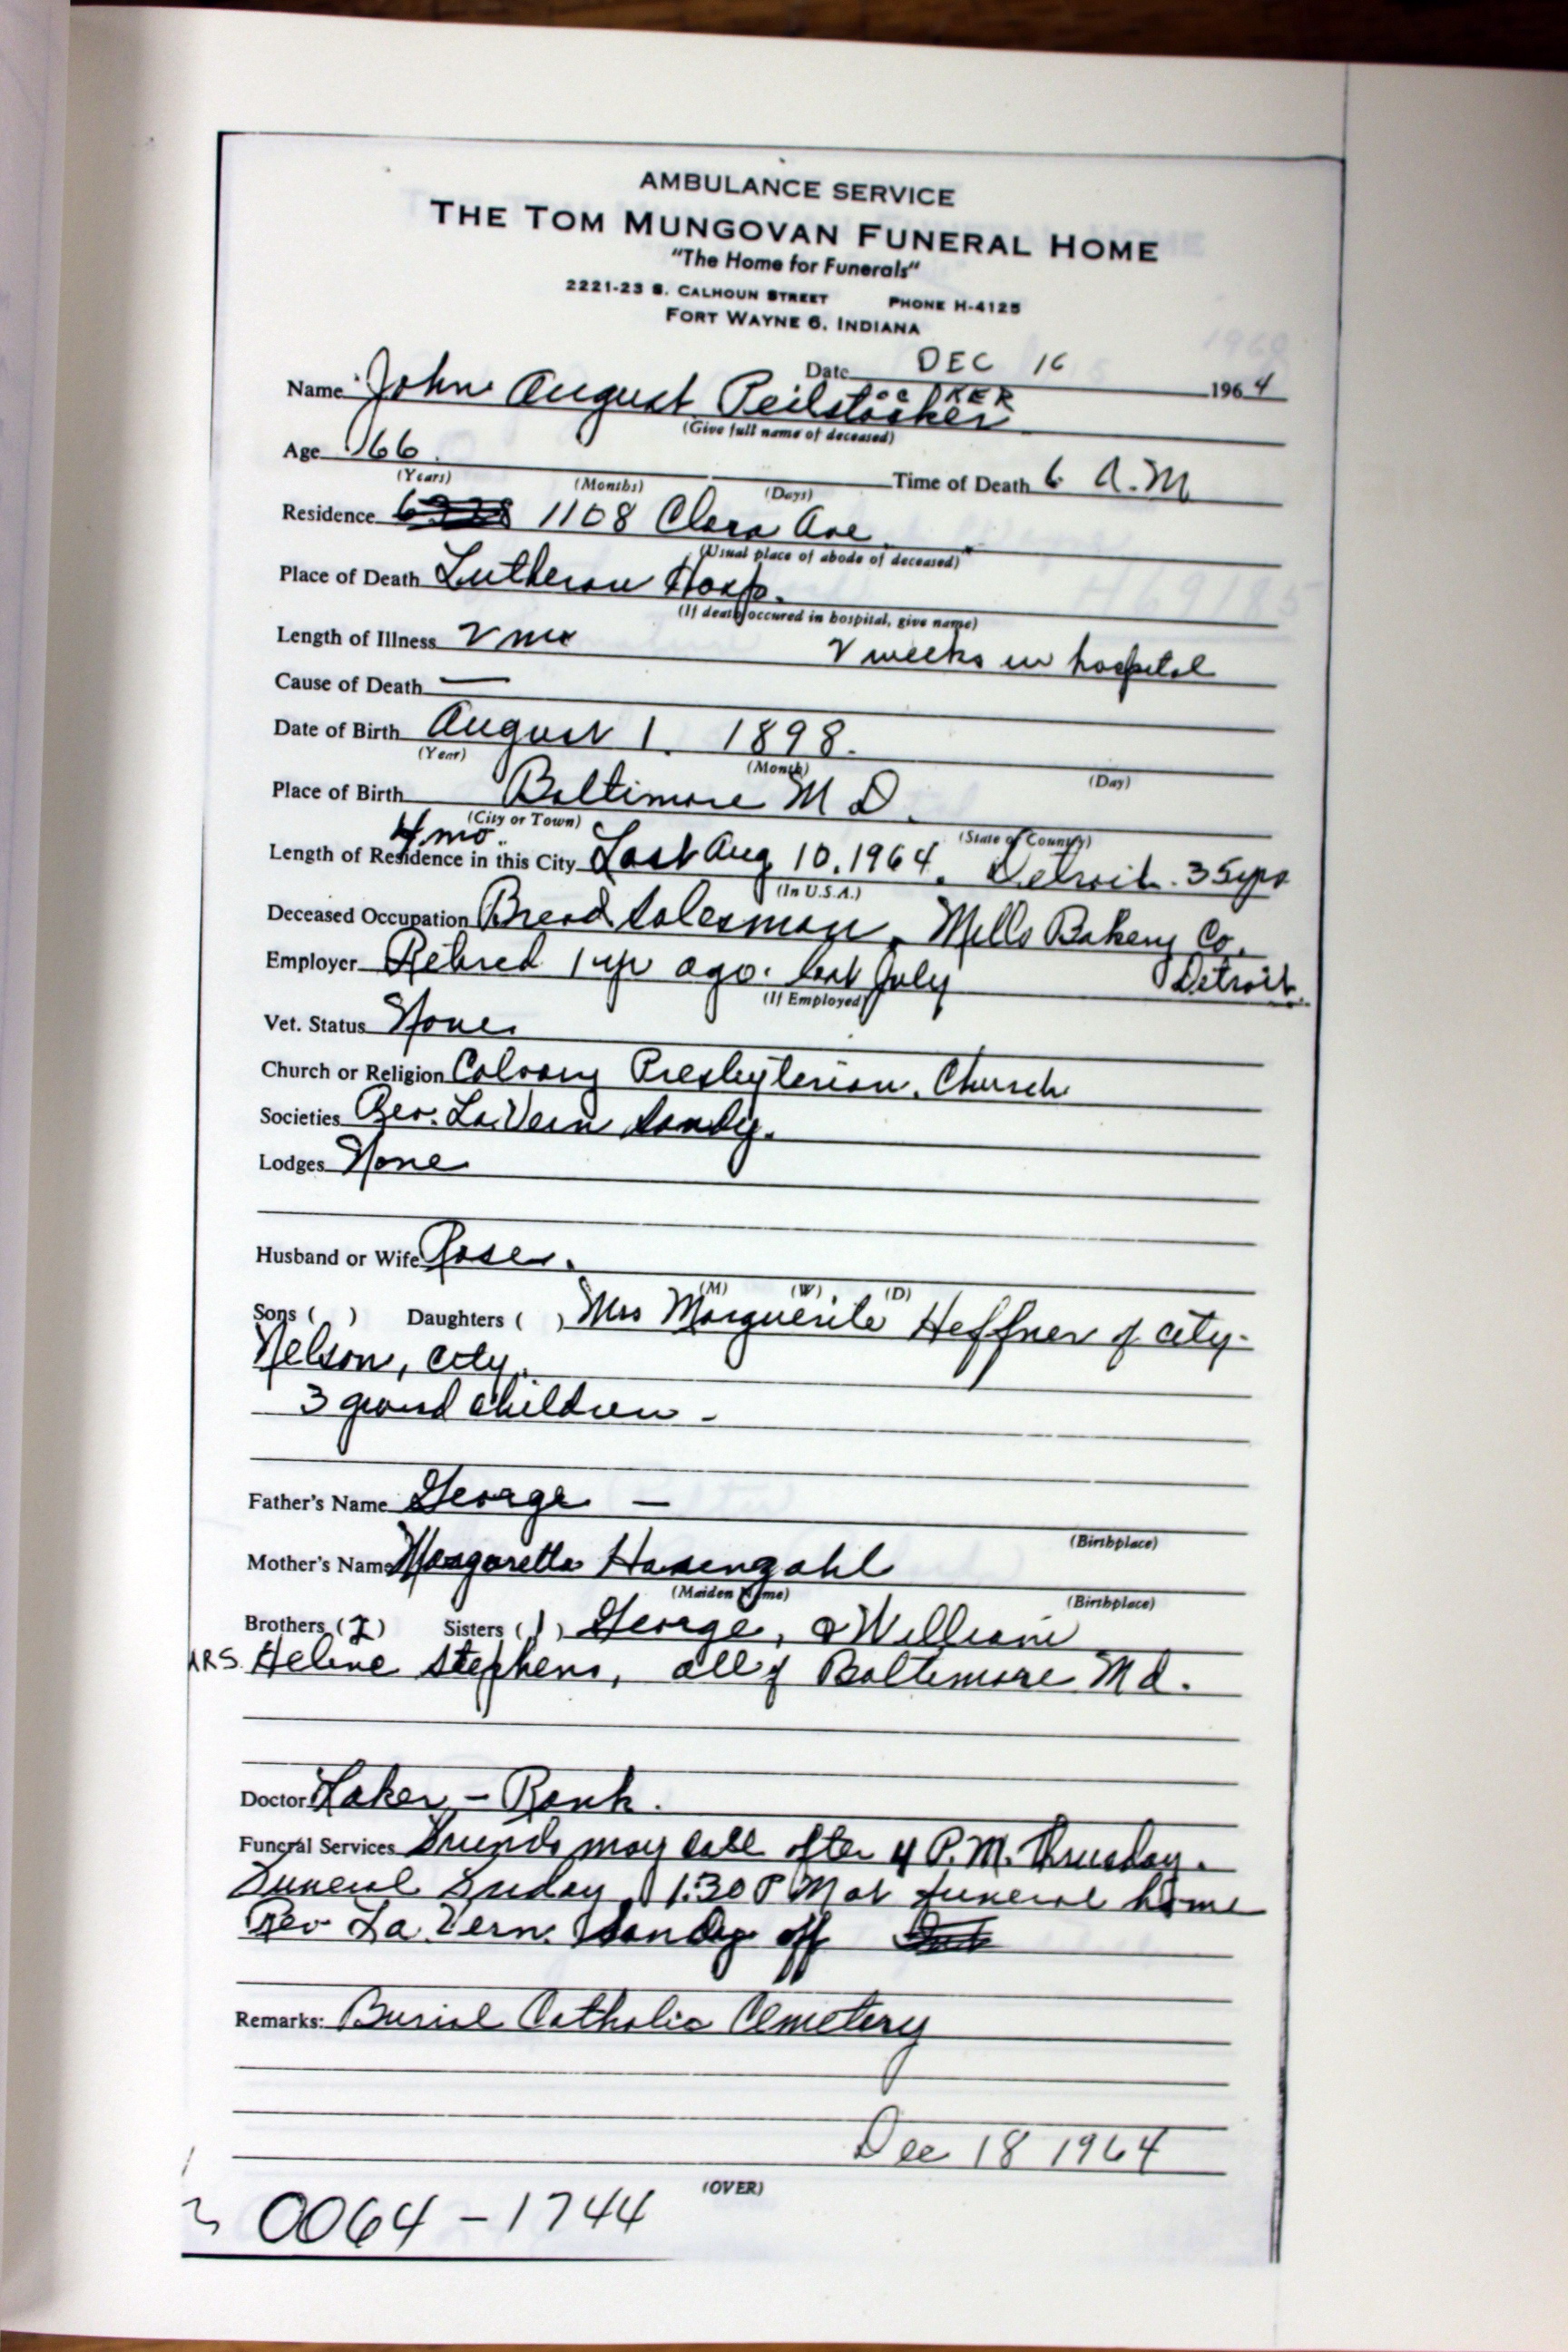 AMBULANCE SERVICE
THE TOM MUNGOVAN FUNERAL HOME
"The Home for Funerals"
2221-23 S. CALHOUN STREET PHONE H-4125
FORT WAYNE 6, INDIANA
Date DEC 16 1964
Name John August Peilstöcker
(Give full name of deceased)
Age 66 Time of Death 6 A.M
(Years) (Months) (Days)
Residence 1108 Clara Ave
(Usual place of abode of deceased)
Place of Death Lutheran Hosp.
(If death occured in hospital, give name)
Length of Illness 2 mo 2 weeks in hospital
Cause of Death —
Date of Birth August 1. 1898.
(Year) (Month) (Day)
Place of Birth Baltimore M D.
(City or Town) (State of Country)
4 mo.
Length of Residence in this City Last Aug 10, 1964. Detroit. 35 yrs
(In U.S.A.)
Deceased Occupation Bread Salesman, Mells Bakery Co.
Employer Retired 1 yr ago. last July Detroit.
(If Employed)
Vet. Status None
Church or Religion Calvary Presbyterian, Church
Societies Rev. La Vern Sandy.
Lodges None
Husband or Wife Rose.
(M) (W) (D)
Sons ( ) Daughters ( ) Mrs Marguerite Heffner of city-
Nelson, city.
3 grand children -
Father's Name George —
(Birthplace)
Mother's Name Margaretta Hasengahl
(Maiden Name) (Birthplace)
Brothers (2) Sisters (1) George, & William
MRS. Heline Stephens, all of Baltimore Md.
Doctor Laker - Rank.
Funeral Services Friends may call after 4 P.M. Thursday.
Funeral Friday, 1:30 P M at funeral home
Rev La Vern. Sandy off
Remarks: Burial Catholic Cemetery
Dec 18 1964
(OVER)
0064-1744